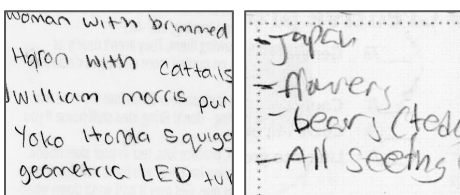 woman with brimmed
Heron with cattails
William morris pur
Yoko Honda squigg
geometric LED tu
-Japan
-flowers
-bears (tedd
-All seeing